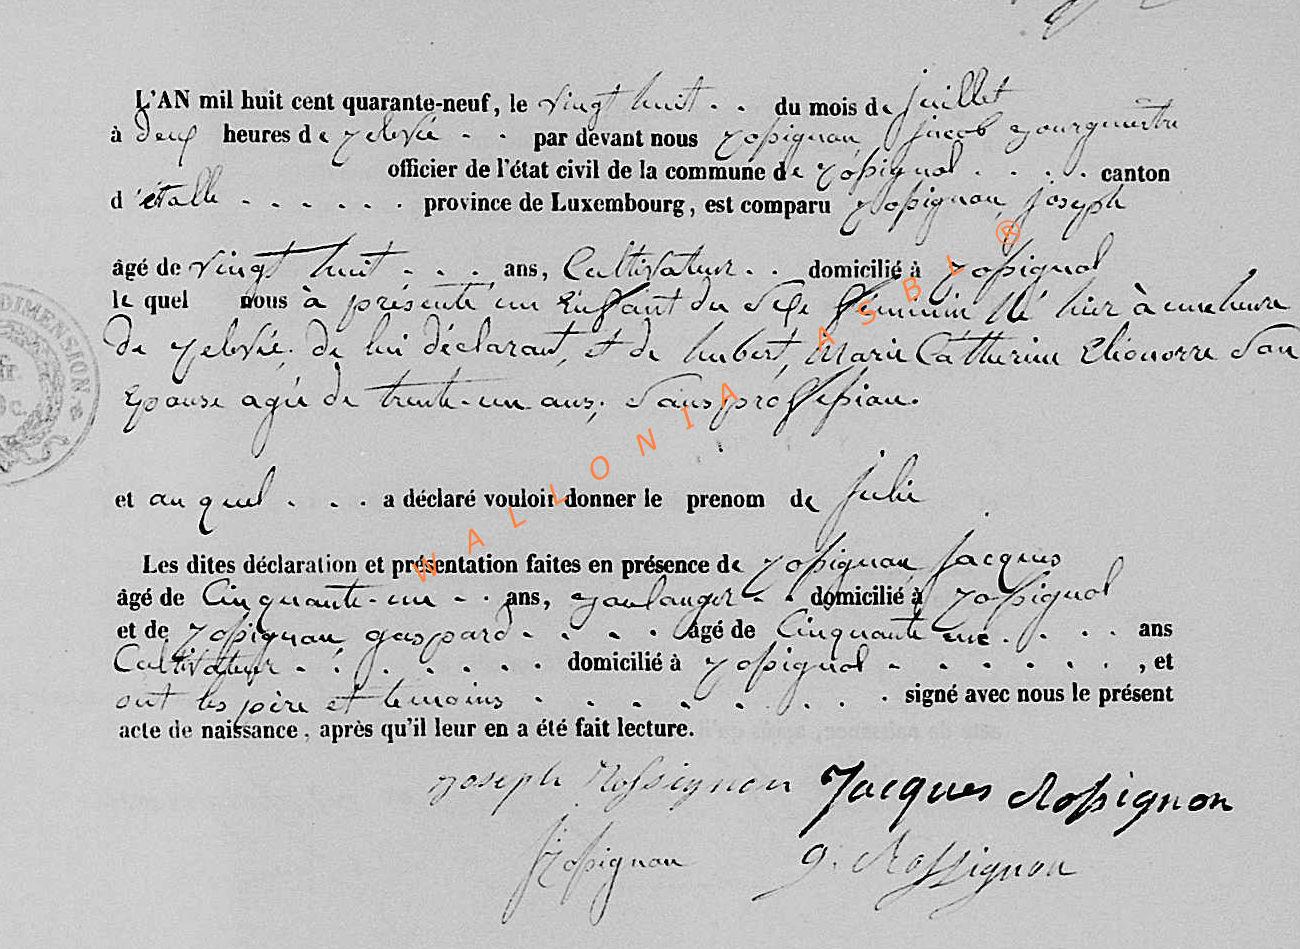 L'AN mil huit cent quarante-neuf, le vingt huit . . du mois de juillet
à deux heures de relevée - - par devant nous Rossignon, jacob Bourgmestre
officier de l'état civil de la commune de rossignol . . . . canton
d'étalle - - - - - - . province de Luxembourg, est comparu Rossignon, joseph
âgé de vingt huit - - - ans, Cultivateur . . domicilié à rossignol
le quel nous à présenté un Enfant du Sexe féminin Né hier à une heure
De relevée, de lui déclarant, et de hubert, Marie Catherine Elionorre Son
Epouse agée de trente-un ans, Sans profession.
et au quel . . . a déclaré vouloir donner le prenom de julie
Les dites déclaration et présentation faites en présence de rossignon jacques
âgé de Cinquante-un - . ans, Boulanger - - domicilié à rossignol
et de rossignon gaspard - . . . âgé de Cinquante une . . . . ans
Cultivateur - . . . . . . . domicilié à rossignol - . . . . . . , et
ont les père et temoins . . . . . . . . signé avec nous le présent
acte de naissance, après qu'il leur en a été fait lecture.
joseph Rossignon Jacques Rossignon
J Rossignon g. Rossignon
DIMENSION.
WALLONIA ASBL ®